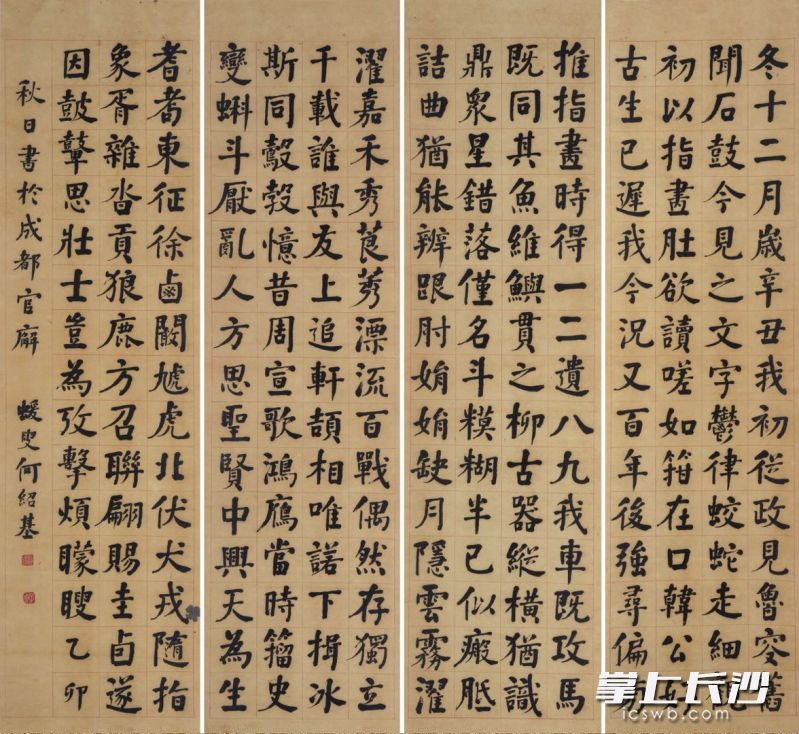 冬十二月歲辛丑我初從政見魯叟舊
聞石鼓今見之文字鬱律蛟蛇走細觀
初以指畫肚欲讀嗟如箝在口韓公好
古生已遲我今況又百年後強尋偏旁
推指畫時得一二遺八九我車既攻馬
既同其魚維鱮貫之柳古器縱橫猶識
鼎衆星錯落僅名斗糢糊半已似瘢胝
詰曲猶能辨跟肘娟娟缺月隱雲霧濯
濯嘉禾秀莨莠漂流百戰偶然存獨立
千載誰與友上追軒頡相唯諾下揖冰
斯同鷇㝅憶昔周宣歌鴻鴈當時籀史
變蝌斗厭亂人方思聖賢中興天為生
耆耇東征徐鹵闞虓虎北伏犬戎隨指
象胥雜沓貢狼鹿方召聯翩賜圭卣遂
因鼓鼙思壯士豈為攷擊煩矇瞍乙卯
秋日書於成都官廨 蝯叟何紹基
掌上长沙
icswb.com